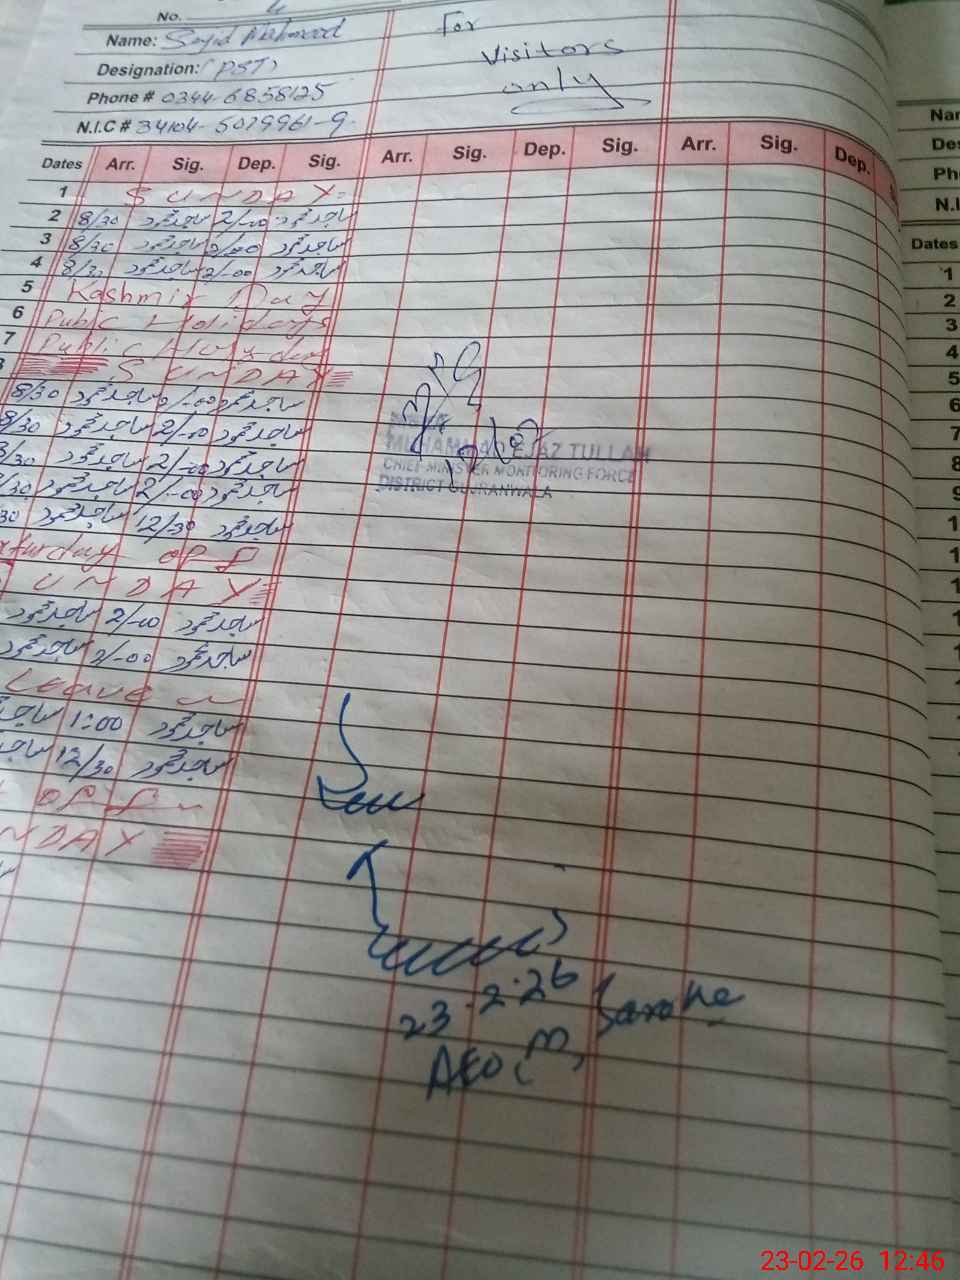 No. 4
Name: Sajid Mahmood
For
Designation: (PST)
Visitors
Phone # 0344-6858125
only
N.I.C # 34104-5079961-9
Dates Arr. Sig. Dep. Sig. Arr. Sig. Dep. Sig. Arr. Sig. Dep.
1 SUNDAY
2 8/30 ساجد محمود 2/-00 ساجد محمود
3 8/30 ساجد محمود 2/-00 ساجد محمود
4 8/30 ساجد محمود 2/-00 ساجد محمود
5 Kashmir Day
6 Public Holidays
7 Public Holiday
SUNDAY
8/30 ساجد محمود 2/-00 ساجد محمود
8/30 ساجد محمود 2/-00 ساجد محمود
8/30 ساجد محمود 2/-00 ساجد محمود
8/30 ساجد محمود 2/-00 ساجد محمود
30 ساجد محمود 12/30 ساجد محمود
aturday off
UNDAY
ساجد محمود 2/-00 ساجد محمود
ساجد محمود 2/-00 ساجد محمود
Leave
ساجد 1:00 ساجد محمود
ساجد 12/30 ساجد محمود
off
NDAY
MUHAMMAD EJAZ TULLAH
CHIEF MINISTER MONITORING FORCE
DISTRICT GUJRANWALA
23-2-26
AEO, M, Saroke
Nar
De
Ph
N.I
Dates
1
2
3
4
5
6
7
8
9
1
1
1
1
1
23-02-26 12:46